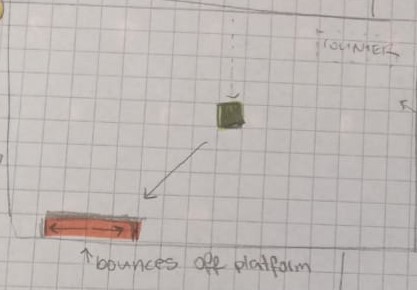 COUNTER
bounces off platform